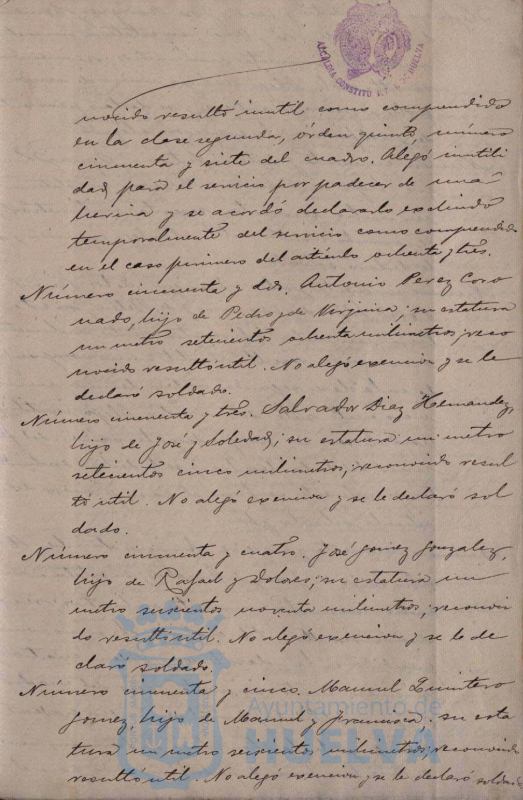 ALCALDIA CONSTITU DE HUELVA
nocido resultó inutil como comprendido
en la clase segunda, órden quinto, número
cincuenta y siete del cuadro. Alegó inutili
dad para el servicio por padecer de una
hernia y se acordó declararlo excluido
temporalmente del servicio como comprendido
en el caso primero del artículo ochenta y tres.
Número cincuenta y dos. Antonio Perez Coro
nado, hijo de Pedro y de Virginia; su estatura
un metro setecientos ochenta milimetros; reco
nocido resultó util. No alegó exencion y se le
declaró soldado.
Número cincuenta y tres. Salvador Diaz Hernandez,
hijo de José y Soledad; su estatura un metro
setecientos cinco milimetros; reconocido resul
tó util. No alegó exencion y se le declaró sol
dado.
Número cincuenta y cuatro. José Gomez Gonzalez,
hijo de Rafael y Dolores; su estatura un
metro seiscientos noventa milimetros; reconoci
do resultó util. No alegó exencion y se le de
claró soldado.
Número cincuenta y cinco. Manuel Quintero
Gomez, hijo de Manuel y Francisca. su esta
tura un metro seiscientos milimetros; reconocido
resultó util. No alegó exencion y se le declaró soldado
Ayuntamiento de
HUELVA